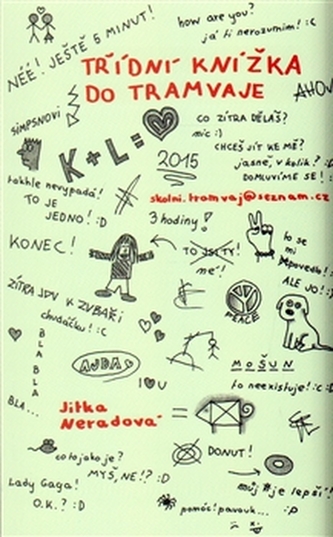 NÉÉ! JEŠTĚ 5 MINUT!
how are you?
já ti nerozumím! :C
TŘÍDNÍ KNÍŽKA
DO TRAMVAJE
AHOJ
SIMPSNOVI
K + L =
CO ZÍTRA DĚLÁŠ?
nic :)
CHCEŠ JÍT KE MĚ?
jasně, v kolik? :D
DOMLUVÍME SE!
2015
takhle nevypadá!
TO JE
JEDNO! :D
skolni.tramvaj@seznam.cz
3 hodiny!
KONEC!
TO JSI TY!
né!
to se
mi
povedlo!
ALE JO! :(
ZÍTRA JDU K ZUBAŘI
chudáčku! :C
PEACE
BLA
BLA
BLA...
AJDA
I U
MOŠUN
to neexistuje! :C
Jitka
Neradová
=
co to jako je?
MYŠ, NE!? :D
DONUT!
můj je lepší!
Lady Gaga!
O.K.? :D
pomóc! pavouk... :P